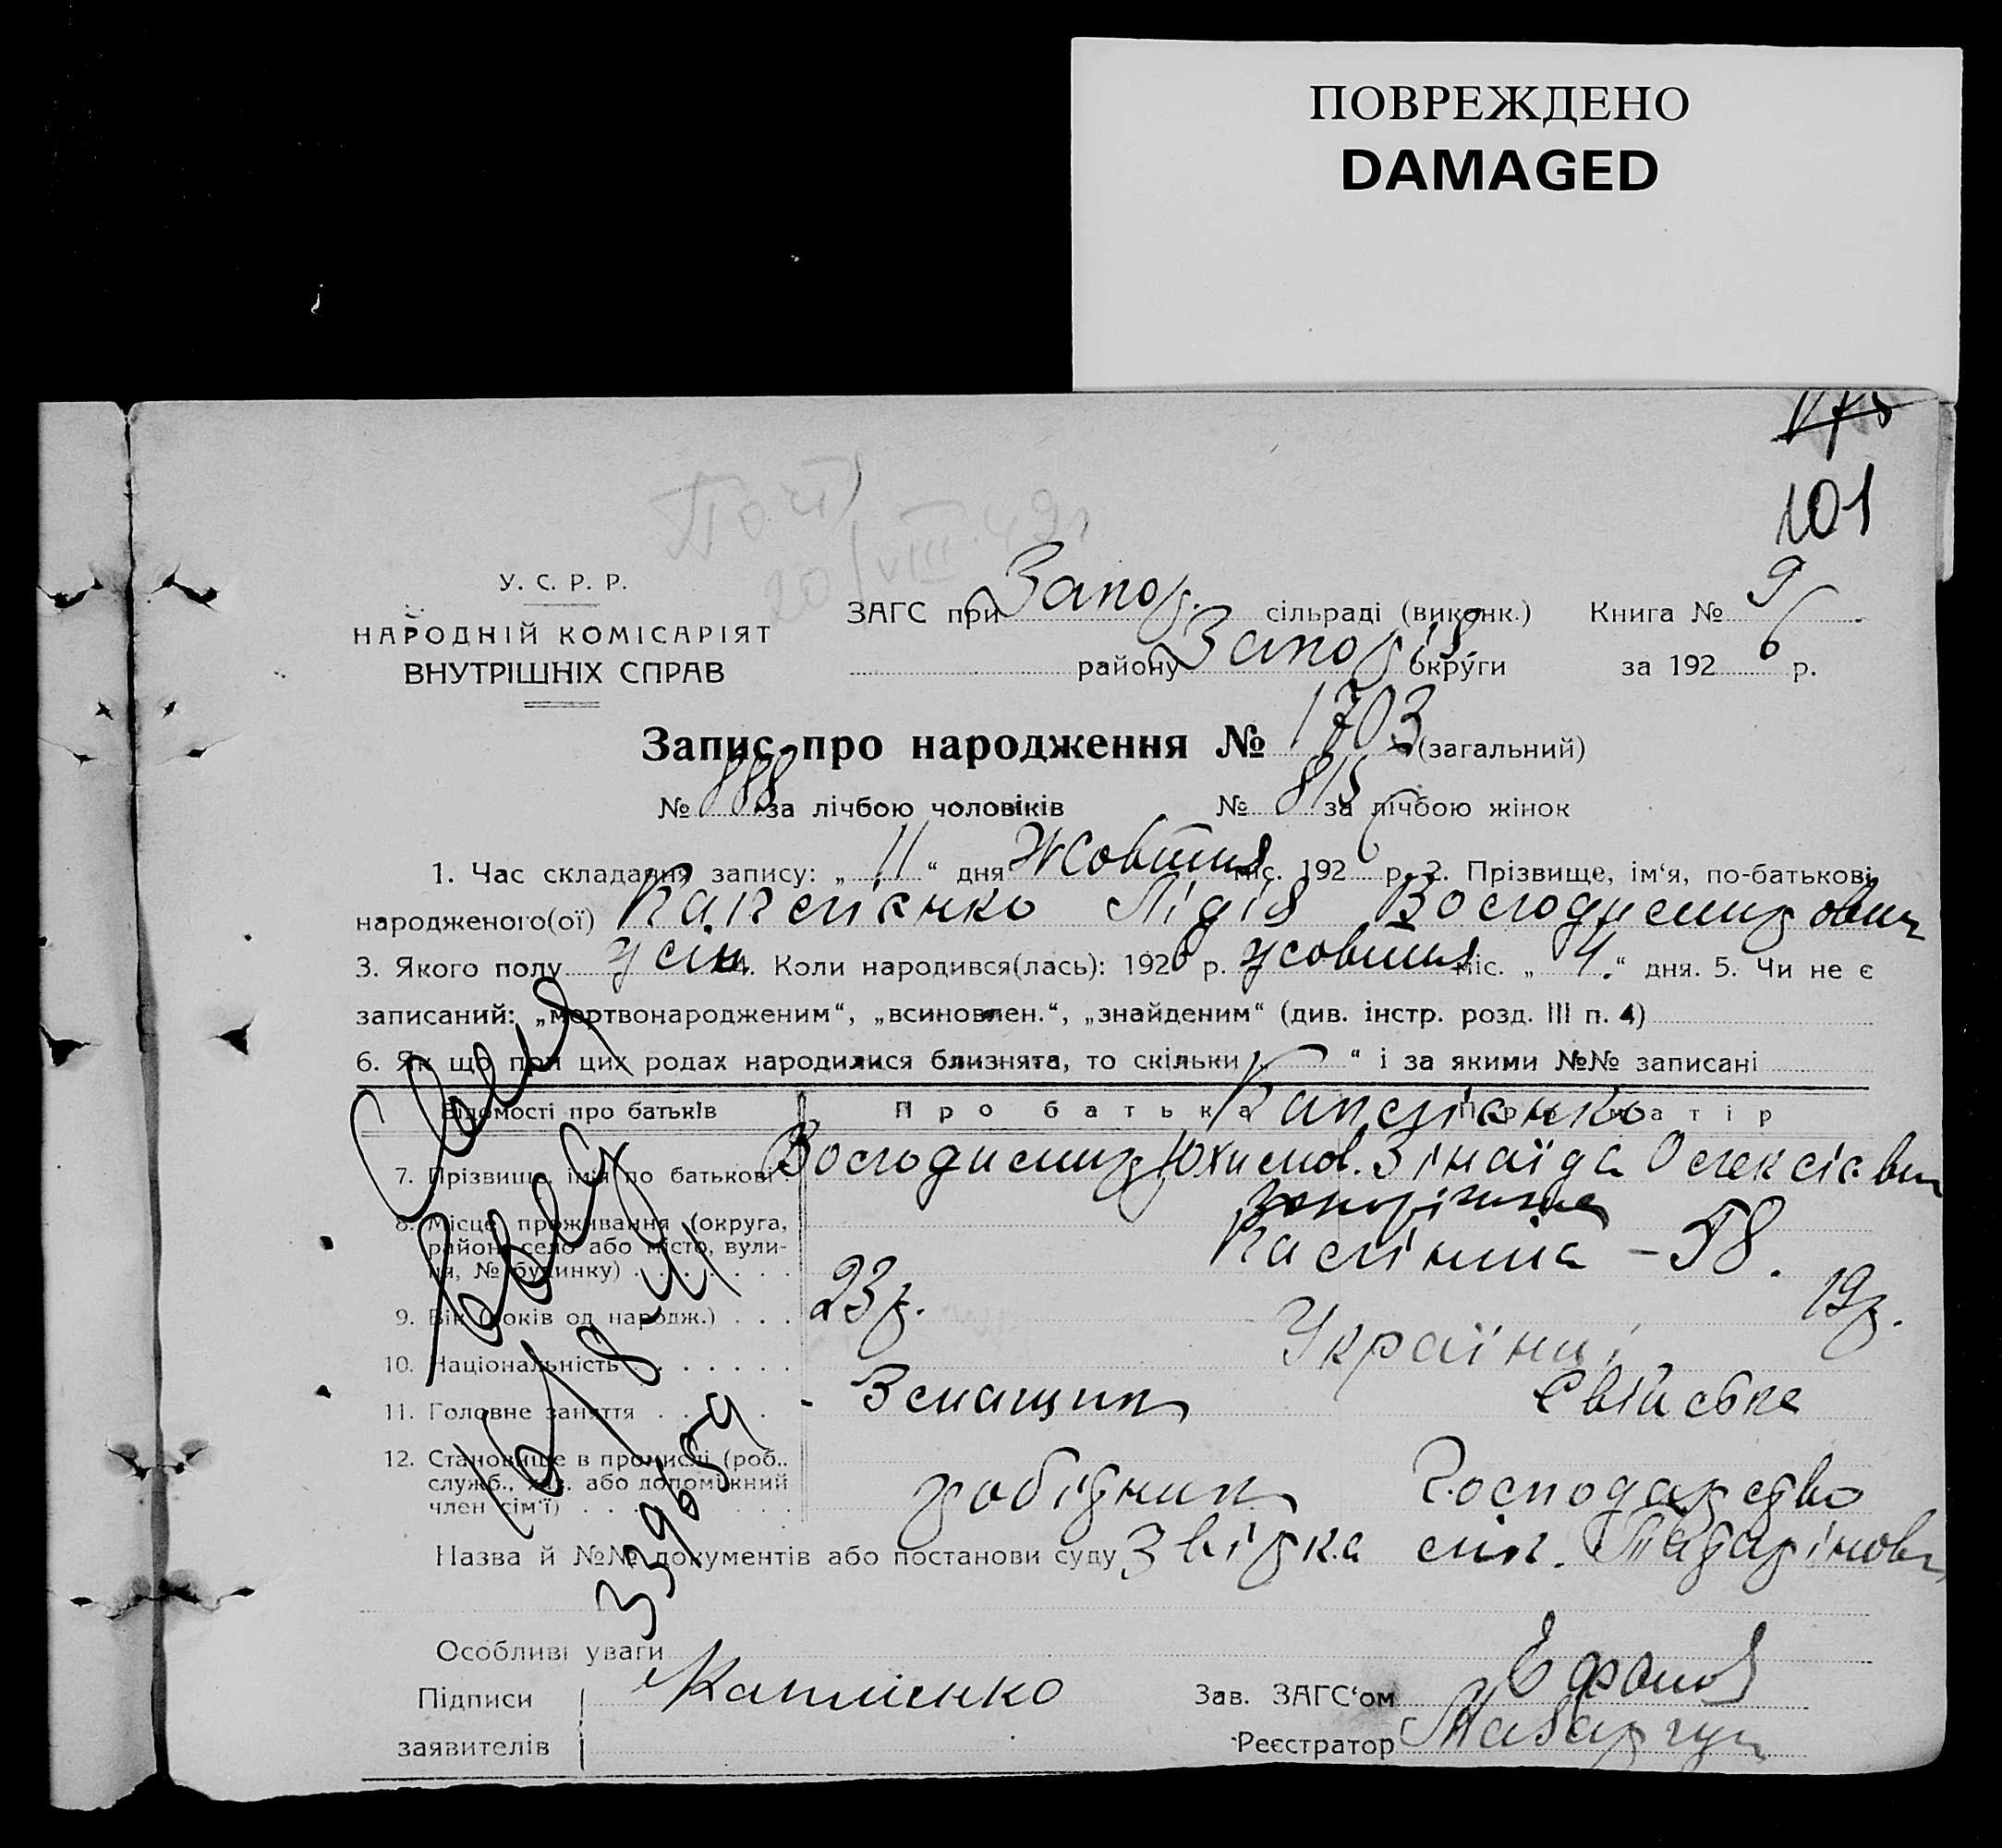 ПОВРЕЖДЕНО
DAMAGED
101
У. С. Р. Р.
НАРОДНІЙ КОМІСАРІЯТ
ВНУТРІШНІХ СПРАВ
ЗАГС при Запор. сільраді (виконк.) Книга № 9
району Запоріз округи за 192 6 р.
Запис про народження № 1703 (загальний)
№ 888 за лічбою чоловіків № 815 за лічбою жінок
1. Час складання запису: „ 11 “ дня Жовтня міс. 192 6 р. 2. Прізвище, ім‘я, по-батькові
народженого(ої) Каплієнко Лідія Володимировна
3. Якого полу жін. 4. Коли народився(лась): 192 6 р. жовтня міс. „ 4. “ дня. 5. Чи не є
записаний: „мертвонародженим“, „всиновлен.“, „знайденим“ (див. інстр. розд. III п. 4)
6. Як що при цих родах народилися близнята, то скільки „ “ і за якими №№ записані
Відомості про батьків Про батька Про матір
Каплієнко
7. Прізвище, імʼя по батькові Володимир Юхимов. Зінаїда Олексієвн
8. Місце проживання (округа,
район, село або місто, вули-
ця, № будинку)
Запоріжжя
Калініна – 58.
9. Вік (років од народж.) 23 р. 19 р.
10. Національність Українці
11. Головне заняття - Змащик Свійське
12. Становище в промислі (роб..
служб., хаз. або допоміжний
член сімʼї)
робітник Господарство
Назва й №№ документів або постанови суду Звірка
Особливі уваги
Підписи
заявителів
Каплієнко
Зав. ЗАГС‘ом
Реєстратор